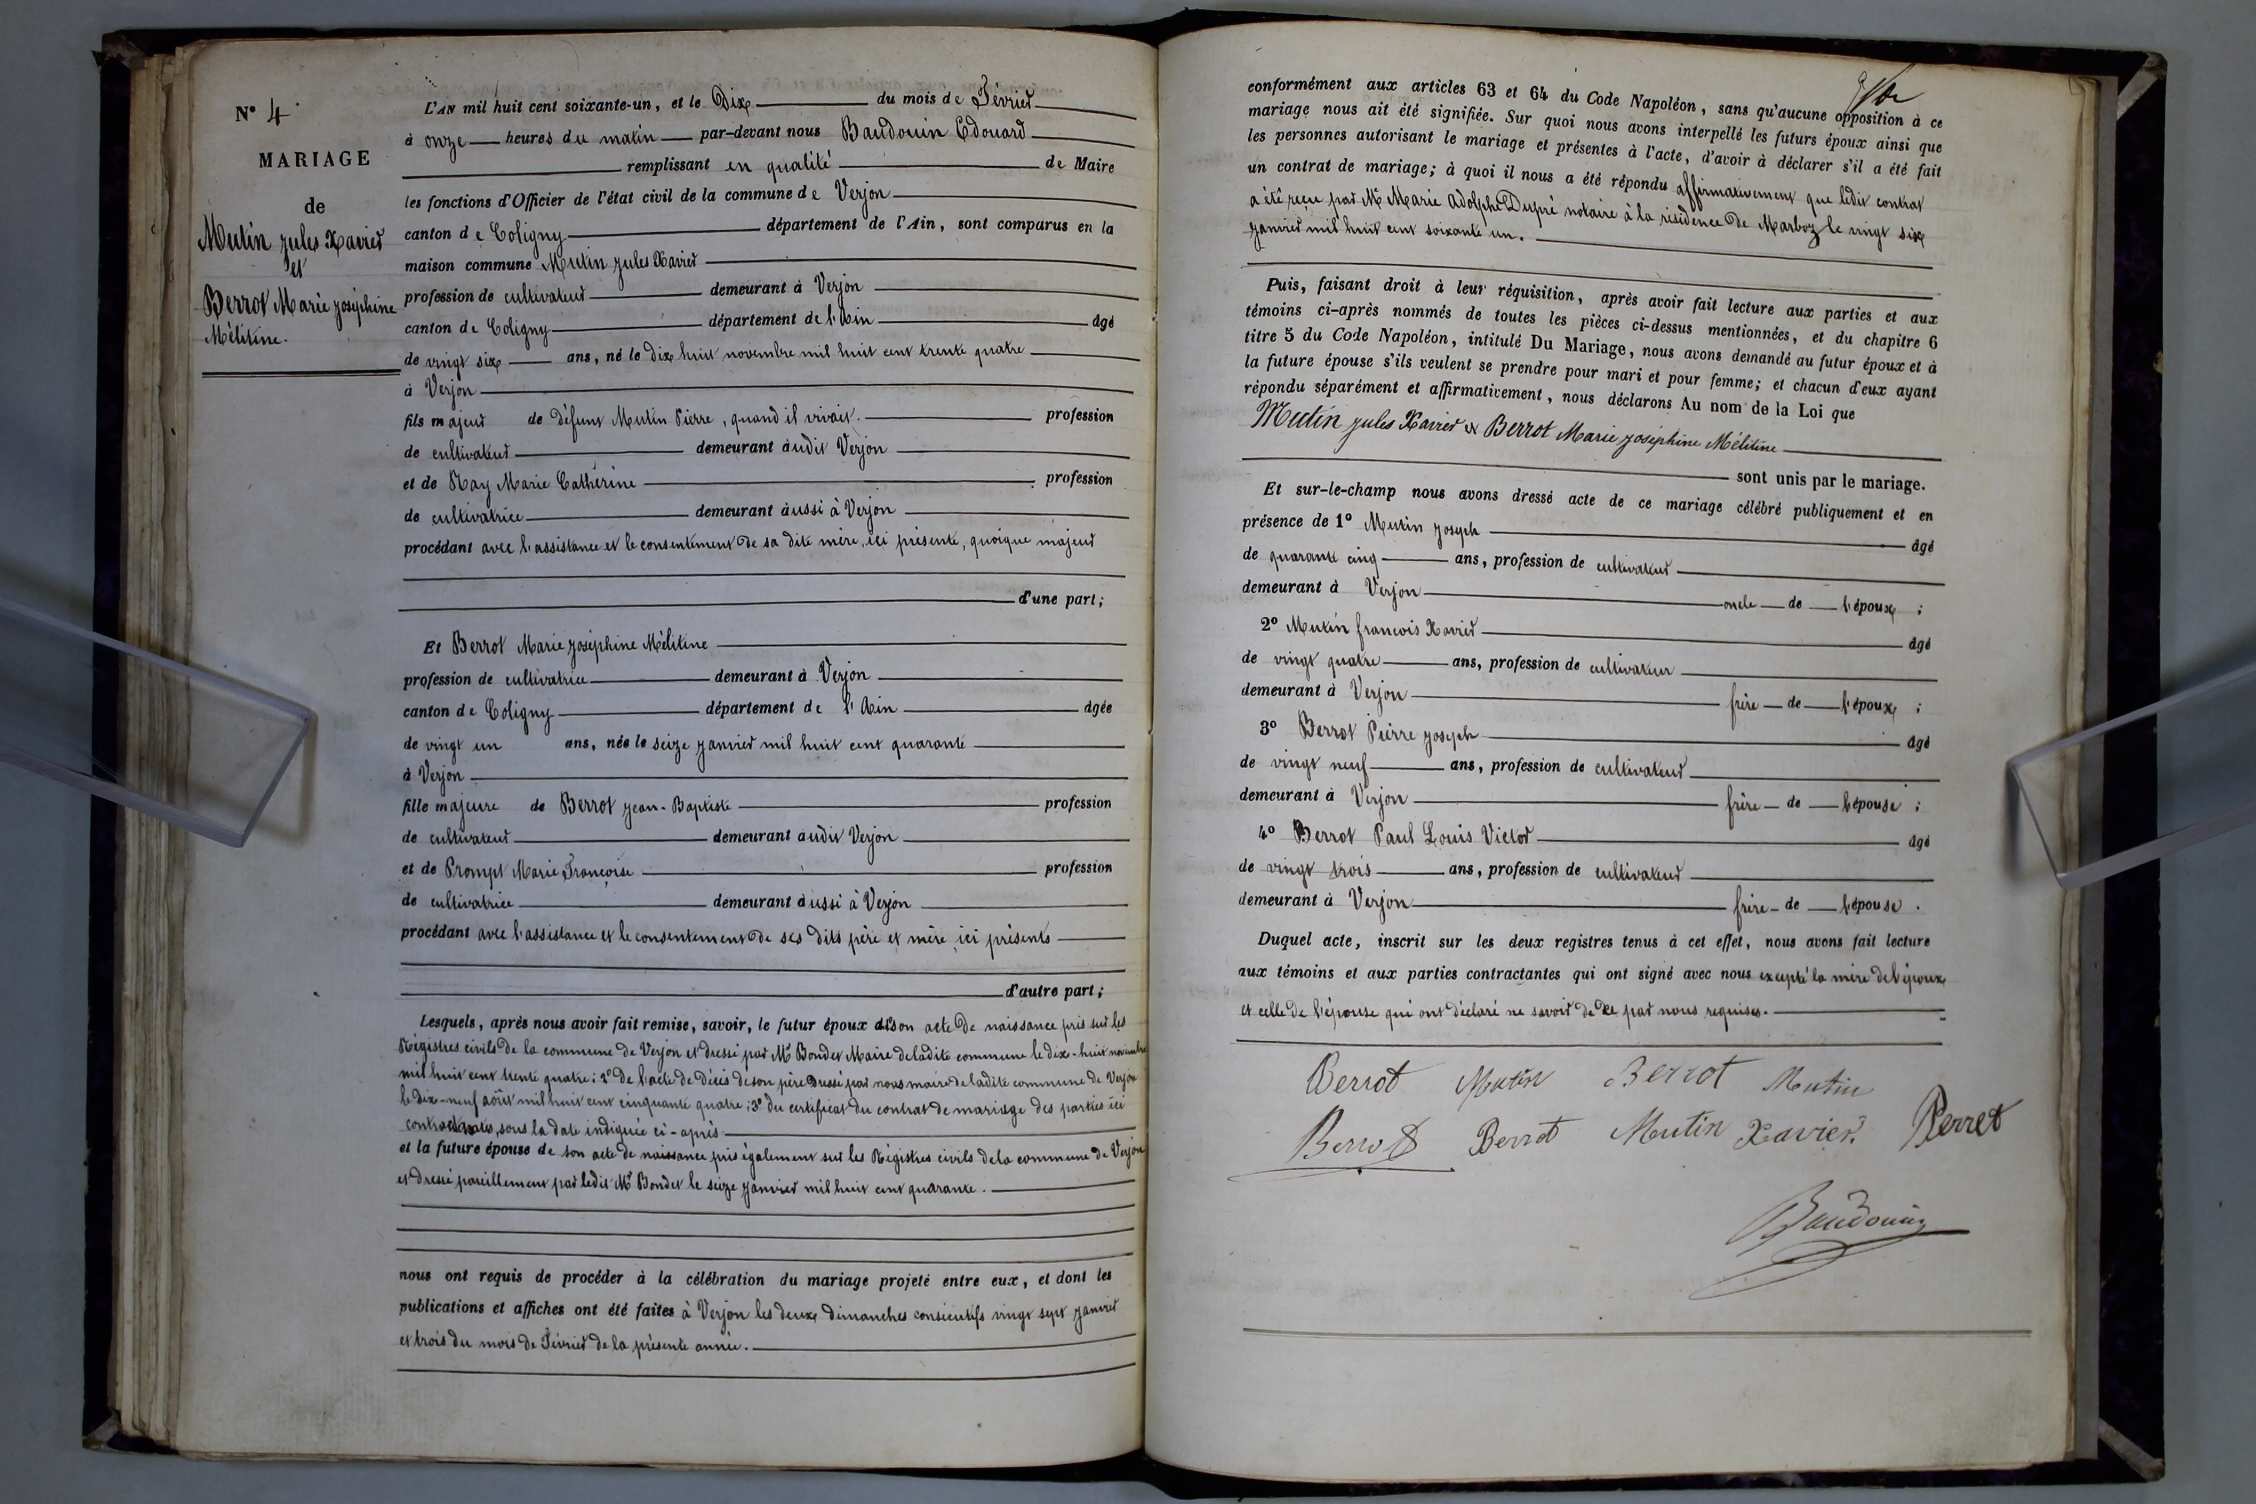 N° 4
MARIAGE
de
Mutin Jules Xavier
et
Berrot Marie Joséphine
Mélitine.
L'AN mil huit cent soixante-un, et le Dix du mois de Février
à onze heures du matin par-devant nous Baudouin Edouard
remplissant en qualité de Maire
les fonctions d'Officier de l'état civil de la commune de Verjon
canton de Coligny département de l'Ain, sont comparus en la
maison commune Mutin Jules Xavier
profession de cultivateur demeurant à Verjon
canton de Coligny département de l'Ain âgé
de vingt six ans, né le dix huit novembre mil huit cent trente quatre
à Verjon
fils majeur de défunt Mutin Pierre, quand il vivait. profession
de cultivateur demeurant audit Verjon
et de Nay Marie Cathérine profession
de cultivatrice demeurant aussi à Verjon
procédant avec l'assistance et le consentement de sa dite mère, ici présente, quoique majeur
d'une part;
Et Berrot Marie Joséphine Mélitine
profession de cultivatrice demeurant à Verjon
canton de Coligny département de l'Ain âgée
de vingt un ans, née le seize janvier mil huit cent quarante
à Verjon
fille majeure de Berrot Jean-Baptiste profession
de cultivateur demeurant audit Verjon
et de Prompt Marie Françoise profession
de cultivatrice demeurant aussi à Verjon
procédant avec l'assistance et le consentement de ses dits père et mère ici présents
d'autre part;
Lesquels, après nous avoir fait remise, savoir, le futur époux de son acte de naissance pris sur les
Régistres civils de la commune de Verjon et dressé par Mr Bondet Maire de ladite commune le dix-huit novembre
mil huit cent trente quatre; 2° de l'acte de décès de son père dressé par nous maire de ladite commune de Verjon
le dix-neuf août mil huit cent cinquante quatre; 3° du certificat du contrat de mariage des parties ici
contractantes, sous la date indiquée ci-après
et la future épouse de son acte de naissance pris également sur les Régistres civils de la commune de Verjon
et dressé pareillement par ledit Mr Bondet le seize janvier mil huit cent quarante.
nous ont requis de procéder à la célébration du mariage projeté entre eux, et dont les
publications et affiches ont été faites à Verjon les deux dimanches consécutifs vingt sept janvier
et trois du mois de Février de la présente année.
conformément aux articles 63 et 64 du Code Napoléon, sans qu'aucune opposition à ce
mariage nous ait été signifiée. Sur quoi nous avons interpellé les futurs époux ainsi que
les personnes autorisant le mariage et présentes à l'acte, d'avoir à déclarer s'il a été fait
un contrat de mariage; à quoi il nous a été répondu affirmativement que ledit contrat
a été reçu par Me Marie Adolphe Dupré notaire à la résidence de Marboz le vingt six
janvier mil huit cent soixante un.
Puis, faisant droit à leur réquisition, après avoir fait lecture aux parties et aux
témoins ci-après nommés de toutes les pièces ci-dessus mentionnées, et du chapitre 6
titre 5 du Code Napoléon, intitulé Du Mariage, nous avons demandé au futur époux et à
la future épouse s'ils veulent se prendre pour mari et pour femme; et chacun d'eux ayant
répondu séparément et affirmativement, nous déclarons Au nom de la Loi que
Mutin Jules Xavier et Berrot Marie Joséphine Mélitine
sont unis par le mariage.
Et sur-le-champ nous avons dressé acte de ce mariage célébré publiquement et en
présence de 1° Mutin Joseph âgé
de quarante cinq ans, profession de cultivateur
demeurant à Verjon oncle de l'époux ;
2° Mutin françois Xavier âgé
de vingt quatre ans, profession de cultivateur
demeurant à Verjon frère de l'époux ;
3° Berrot Pierre Joseph âgé
de vingt neuf ans, profession de cultivateur
demeurant à Verjon frère de l'épouse ;
4° Berrot Paul Louis Victor âgé
de vingt trois ans, profession de cultivateur
demeurant à Verjon frère de l'épouse .
Duquel acte, inscrit sur les deux registres tenus à cet effet, nous avons fait lecture
aux témoins et aux parties contractantes qui ont signé avec nous excepté la mère de l'époux
et celle de l'épouse qui ont déclaré ne savoir de ce par nous requises.
Berrot Mutin Berrot Mutin
Berrot Berrot Mutin Xavier Perret
Baudouin